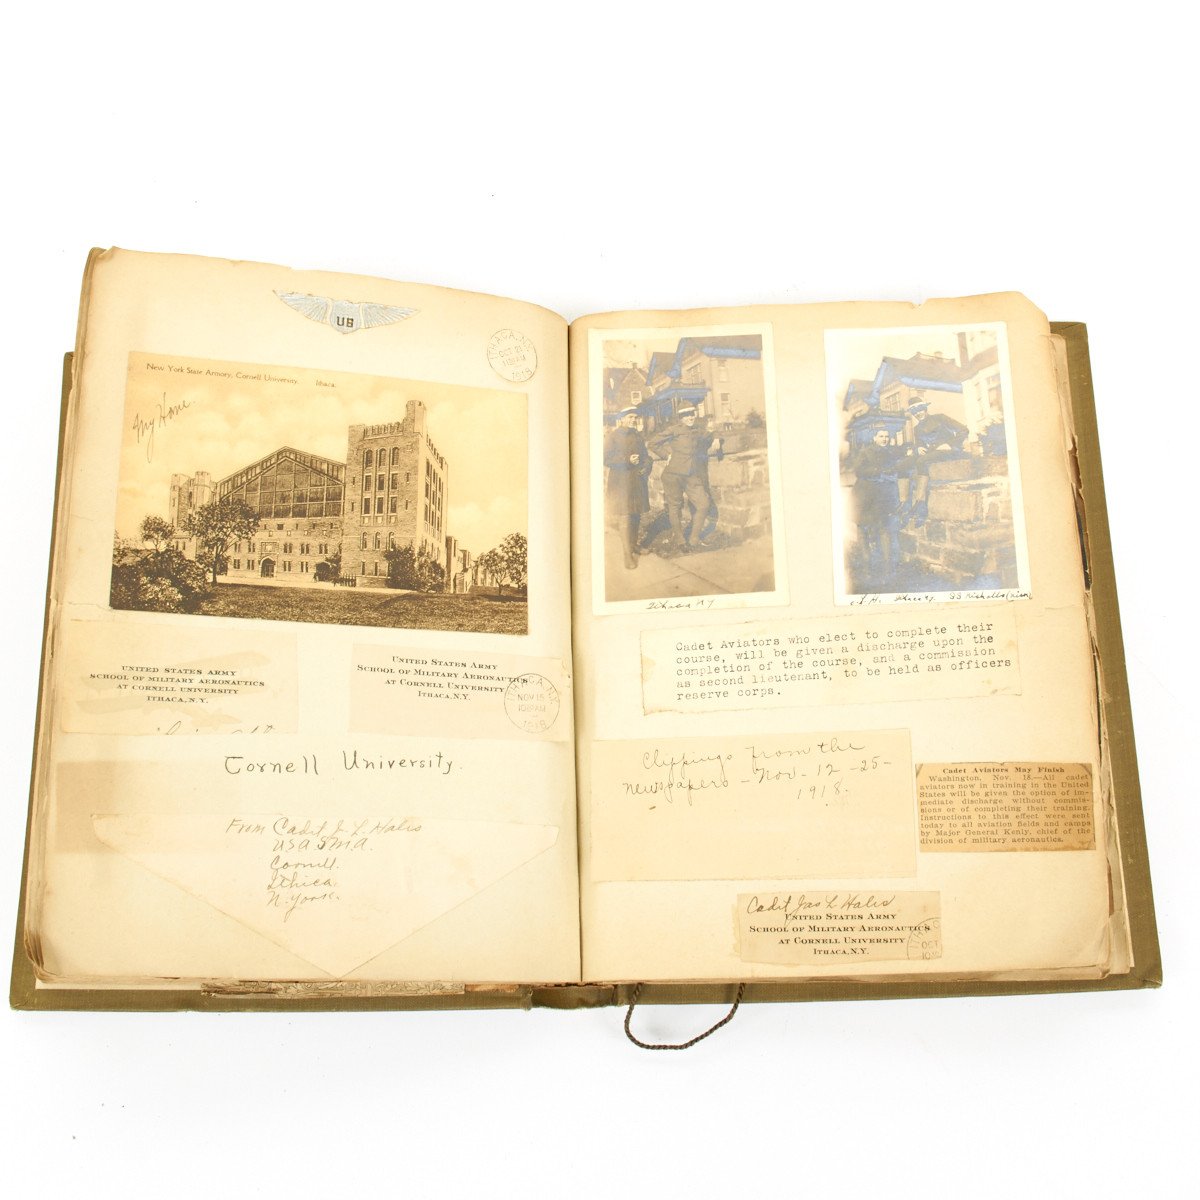 US
ITHACA, N.Y.
OCT 21
1918
New York State Armory, Cornell University. Ithaca.
My Home.
UNITED STATES ARMY
SCHOOL OF MILITARY AERONAUTICS
AT CORNELL UNIVERSITY
ITHACA, N.Y.
UNITED STATES ARMY
SCHOOL OF MILITARY AERONAUTICS
AT CORNELL UNIVERSITY
ITHACA, N.Y.
ITHACA, N.Y.
NOV 15
1918
Cornell University.
From Cadet J. L. Halis
USA SMA.
Cornell.
Ithaca.
N. York.
Ithaca NY
Ithaca NY.
Cadet Aviators who elect to complete their
course, will be given a discharge upon the
completion of the course, and a commission
as second lieutenant, to be held as officers
reserve corps.
Clippings from the
newspapers - Nov - 12 - 25 -
1918.
Cadet Aviators May Finish
Washington, Nov. 18.—All cadet
aviators now in training in the United
States will be given the option of im-
mediate discharge without commis-
sions or of completing their training.
Instructions to this effect were sent
today to all aviation fields and camps
by Major General Kenly, chief of the
division of military aeronautics.
Cadet Jas L Halis
UNITED STATES ARMY
SCHOOL OF MILITARY AERONAUTICS
AT CORNELL UNIVERSITY
ITHACA, N.Y.
OCT